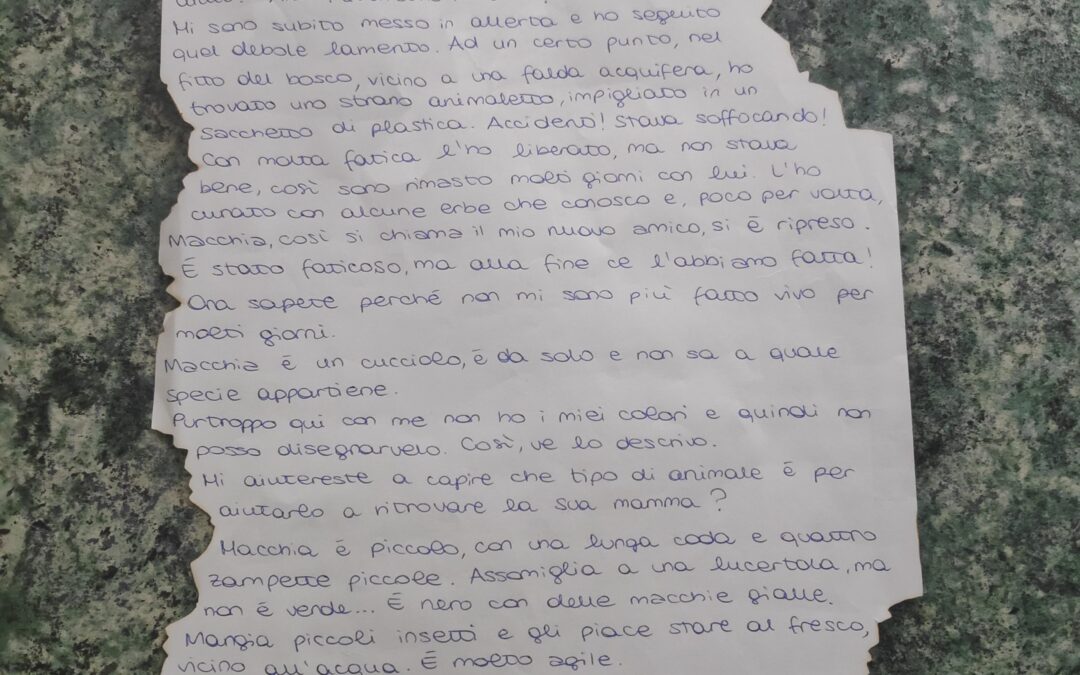 Mi sono subito messo in allerta e ho seguito
quel debole lamento. Ad un certo punto, nel
fitto del bosco, vicino a una falda acquifera, ho
trovato uno strano animaletto, impigliato in un
sacchetto di plastica. Accidenti! Stava soffocando!
Con molta fatica l'ho liberato, ma non stava
bene, così sono rimasto molti giorni con lui. L'ho
curato con alcune erbe che conosco e, poco per volta,
Macchia, così si chiama il mio nuovo amico, si è ripreso.
È stato faticoso, ma alla fine ce l'abbiamo fatta!
Ora sapete perché non mi sono più fatto vivo per
molti giorni.
Macchia è un cucciolo, è da solo e non sa a quale
specie appartiene.
Purtroppo qui con me non ho i miei colori e quindi non
posso disegnarvelo. Così, ve lo descrivo.
Mi aiutereste a capire che tipo di animale è per
aiutarlo a ritrovare la sua mamma?
Macchia è piccolo, con una lunga coda e quattro
zampette piccole. Assomiglia a una lucertola, ma
non è verde... È nero con delle macchie gialle.
Mangia piccoli insetti e gli piace stare al fresco,
vicino all'acqua. È molto agile.